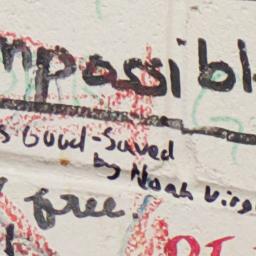 mpossibl
s Good-Saved
by Noah Virg
free.